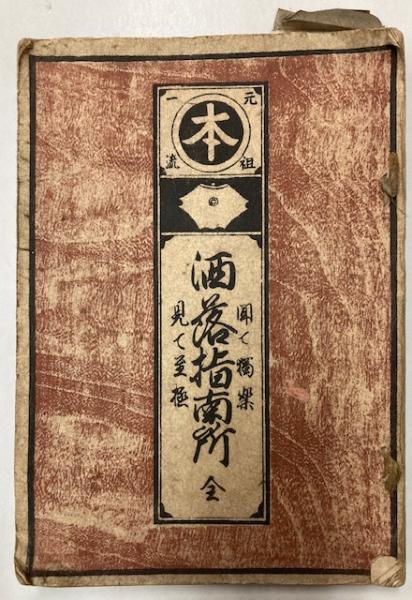 元祖
本
一流
洒落指南所 全
聞て獨樂
見て至極